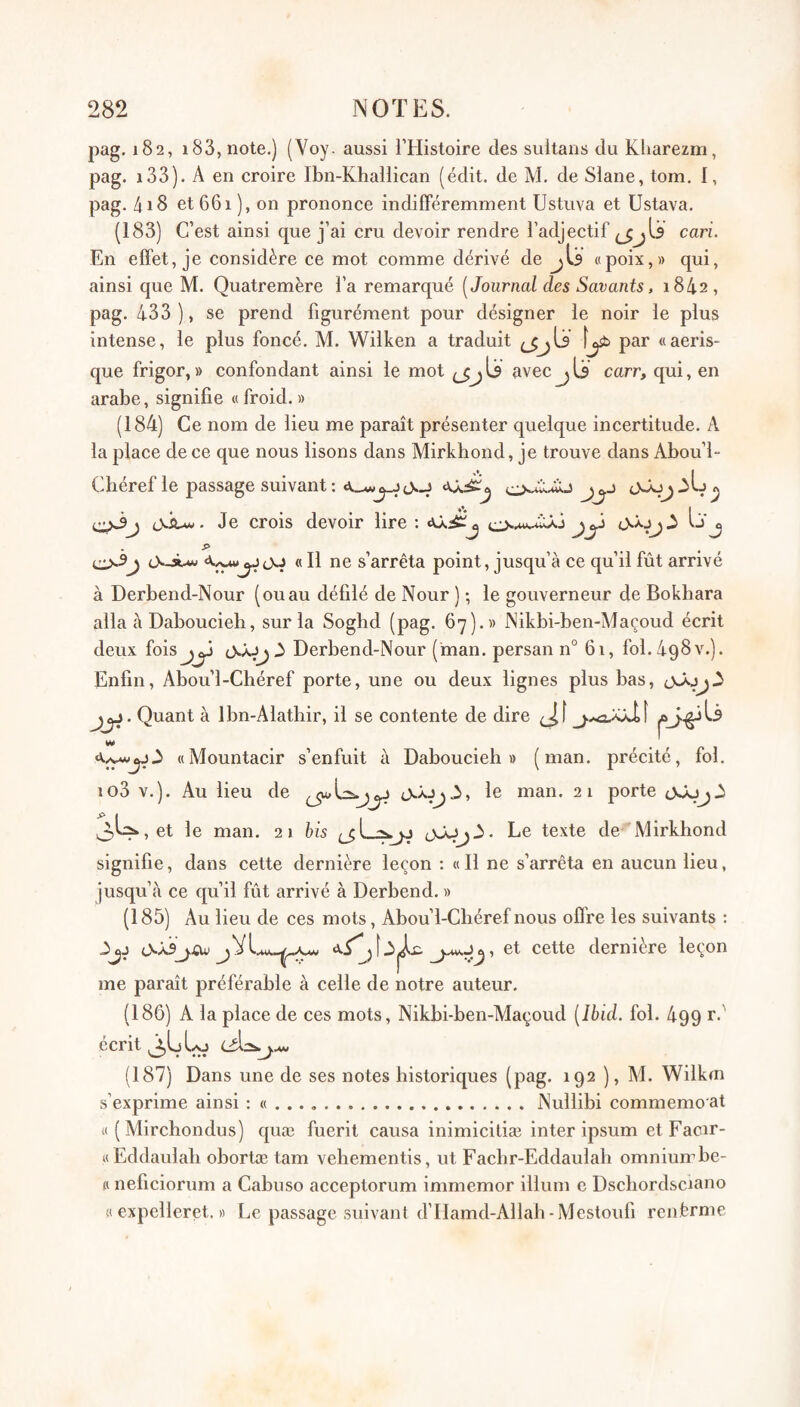 282 NOTES.
pag. 182, 183, note.) (Voy. aussi l'Histoire des sultans du Kharezm,
pag. 133). A en croire Ibn-Khallican (édit. de M. de Slane, tom. I,
pag. 418 et 661), on prononce indifféremment Ustuva et Ustava.
(183) C'est ainsi que j'ai cru devoir rendre l'adjectif قاری cari.
En effet, je considère ce mot comme dérivé de قار «poix,» qui,
ainsi que M. Quatremère l'a remarqué (Journal des Savants, 1842,
pag. 433), se prend figurément pour désigner le noir le plus
intense, le plus foncé. M. Wilken a traduit هوا قاری par «aeris-
que frigor,» confondant ainsi le mot قاری avec قار carr, qui, en
arabe, signifie «froid.»
(184) Ce nom de lieu me paraît présenter quelque incertitude. A
la place de ce que nous lisons dans Mirkhond, je trouve dans Abou'l-
Chéref le passage suivant :
رفت سغد. Je crois devoir lire :
رفت سغد بدبوسیه «Il ne s'arrêta point, jusqu'à ce qu'il fût arrivé
à Derbend-Nour (ou au défilé de Nour); le gouverneur de Bokhara
alla à Daboucieh, sur la Soghd (pag. 67).» Nikbi-ben-Maçoud écrit
deux fois دربند نور Derbend-Nour (man. persan n° 61, fol. 498 v.).
Enfin, Abou'l-Chéref porte, une ou deux lignes plus bas, دربند
نور. Quant à Ibn-Alathir, il se contente de dire فانهزم المنتصر الى
دبوسیه «Mountacir s'enfuit à Daboucieh» (man. précité, fol.
103 v.). Au lieu de دربند , le man. 21 porte دربند
, et le man. 21 bis دربند . Le texte de Mirkhond
signifie, dans cette dernière leçon : «Il ne s'arrêta en aucun lieu,
jusqu'à ce qu'il fût arrivé à Derbend.»
(185) Au lieu de ces mots, Abou'l-Chéref nous offre les suivants :
, et cette dernière leçon
me paraît préférable à celle de notre auteur.
(186) A la place de ces mots, Nikbi-ben-Maçoud (Ibid. fol. 499 r.)
écrit
(187) Dans une de ses notes historiques (pag. 192), M. Wilken
s'exprime ainsi : «........................ Nullibi commemorat
«(Mirchondus) quæ fuerit causa inimicitiæ inter ipsum et Facir-
«Eddaulah obortæ tam vehementis, ut Fachr-Eddaulah omnium be-
«neficiorum a Cabuso acceptorum immemor illum e Dschordsciano
«expelleret.» Le passage suivant d'Hamd-Allah-Mestoufi renferme